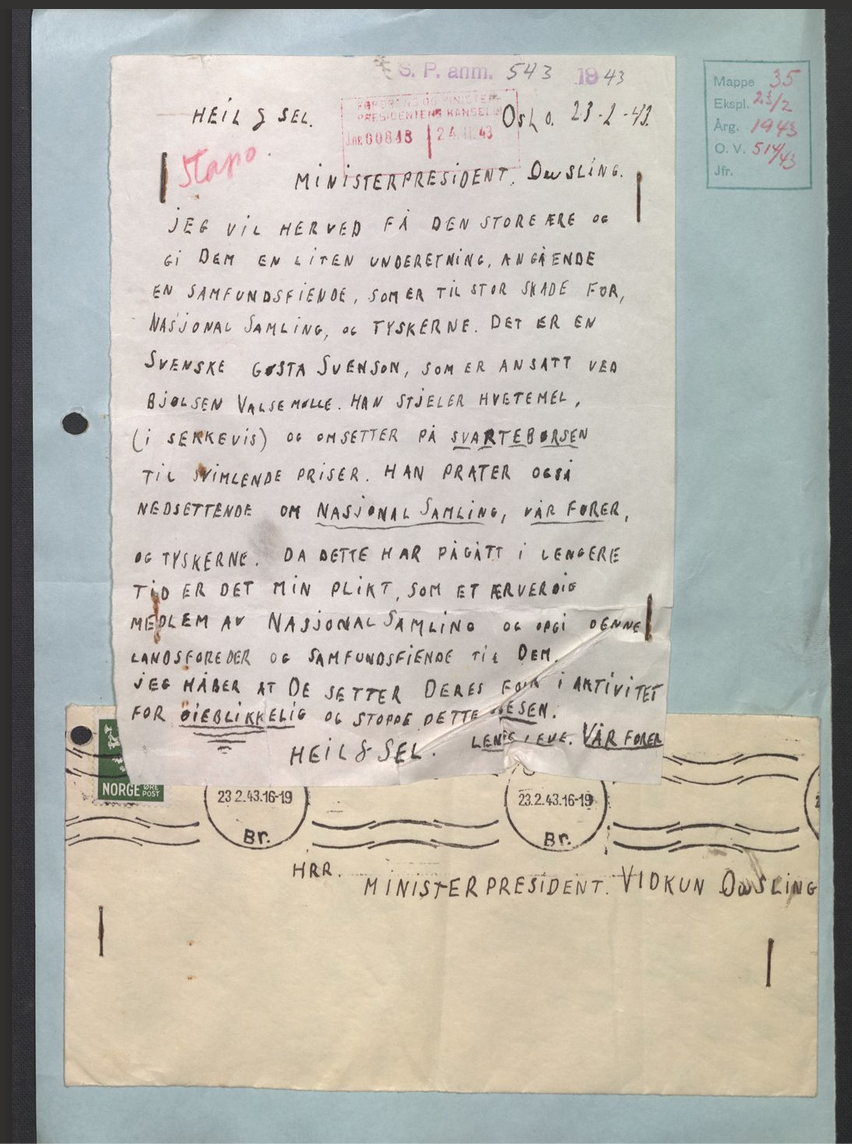 S. P. anm. 543 1943
Mappe 35
Ekspl. 23/2
Årg. 1943
O. V. 514/43
Jfr.
FØRERENS OG MINISTER-
PRESIDENTENS KANSELLI
JNR. 00848 24.II.43
HEIL & SEL. Oslo. 23-2-43.
Stapo
MINISTERPRESIDENT. QUISLING.
JEG VIL HERVED FÅ DEN STORE ÆRE OG
GI DEM EN LITEN UNDERETNING, ANGÅENDE
EN SAMFUNDSFIENDE, SOM ER TIL STOR SKADE FOR,
NASJONAL SAMLING, OG TYSKERNE. DET ER EN
SVENSKE GØSTA SVENSON, SOM ER ANSATT VED
BJØLSEN VALSEMØLLE. HAN STJELER HVETEMEL,
(I SEKKEVIS) OG OMSETTER PÅ SVARTEBØRSEN
TIL SVIMLENDE PRISER. HAN PRATER OGSÅ
NEDSETTENDE OM NASJONAL SAMLING, VÅR FØRER,
OG TYSKERNE. DA DETTE HAR PÅGÅTT I LENGERE
TID ER DET MIN PLIKT, SOM ET ÆRVERDIG
MEDLEM AV NASJONAL SAMLING OG OPGI DENNE
LANDSFOREDER OG SAMFUNDSFIENDE TIL DEM.
JEG HÅBER AT DE SETTER DERES FOLK I AKTIVITET
FOR ØIEBLIKKELIG OG STOPPE DETTE VESEN.
HEIL & SEL. LENGE LEVE. VÅR FØRER
NORGE ØRE POST
23.2.43.16-19
Br.
23.2.43.16-19
Br.
HRR.
MINISTERPRESIDENT. VIDKUN QUISLING